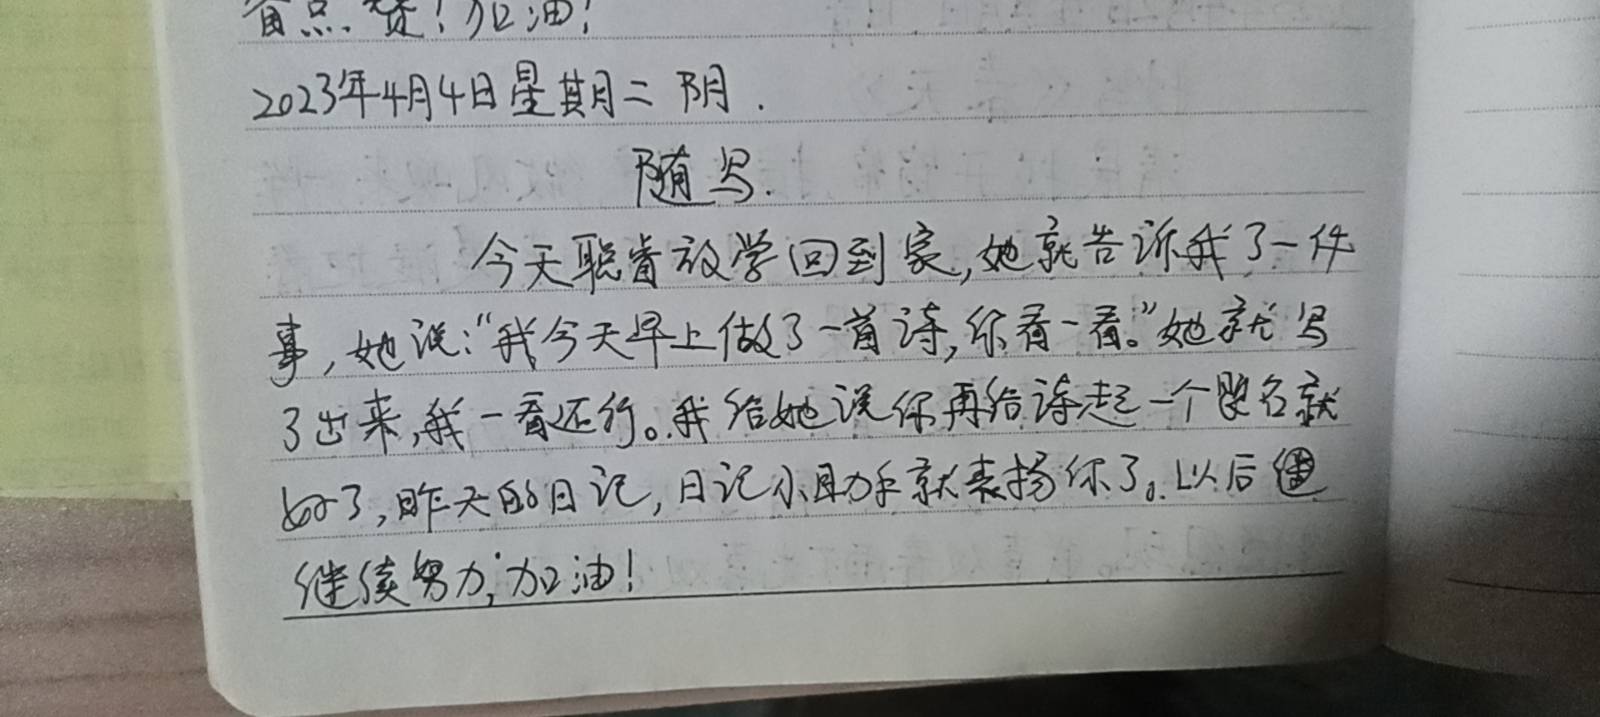 省点赞!加油!
2023年4月4日星期二 阴.
随写.
今天聪睿放学回到家,她就告诉我了一件
事,她说:“我今天早上做了一首诗,你看一看。”她就写
了出来,我一看还行。我给她说你再给诗起一个题名就
好了,昨天的日记,日记小助手就表扬你了。以后
继续努力,加油!